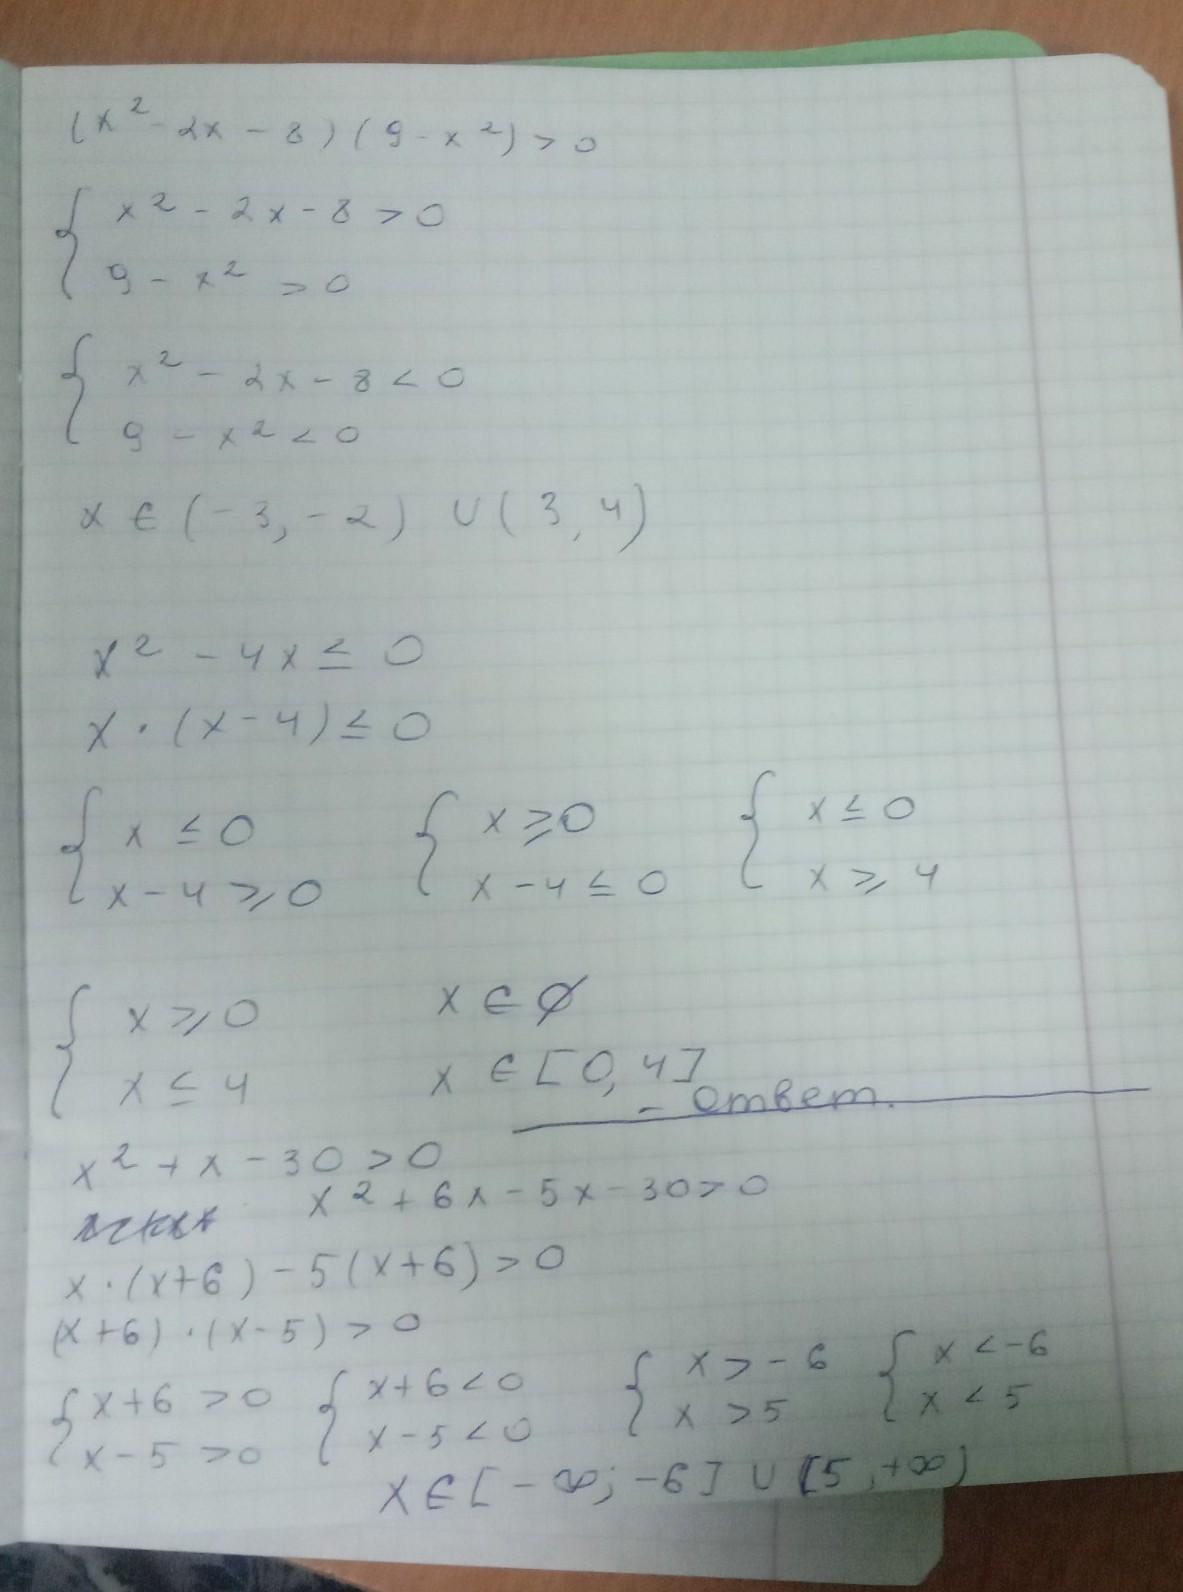 (x² - 2x - 8)(9 - x²) > 0
{ x² - 2x - 8 > 0
9 - x² > 0
{ x² - 2x - 8 < 0
9 - x² < 0
x ∈ (-3, -2) ∪ (3, 4)
x² - 4x ≤ 0
x · (x - 4) ≤ 0
{ x ≤ 0 { x ≥ 0 { x ≤ 0
x - 4 ≥ 0 x - 4 ≤ 0 x ≥ 4
{ x ≥ 0 x ∈ ∅
x ≤ 4 x ∈ [0, 4]
- ответ.
x² + x - 30 > 0
x² + 6x - 5x - 30 > 0
x · (x+6) - 5(x+6) > 0
(x+6) · (x-5) > 0
{ x+6 > 0 { x+6 < 0 { x > -6 { x < -6
x - 5 > 0 x - 5 < 0 x > 5 x < 5
x ∈ [-∞; -6] ∪ [5, +∞)